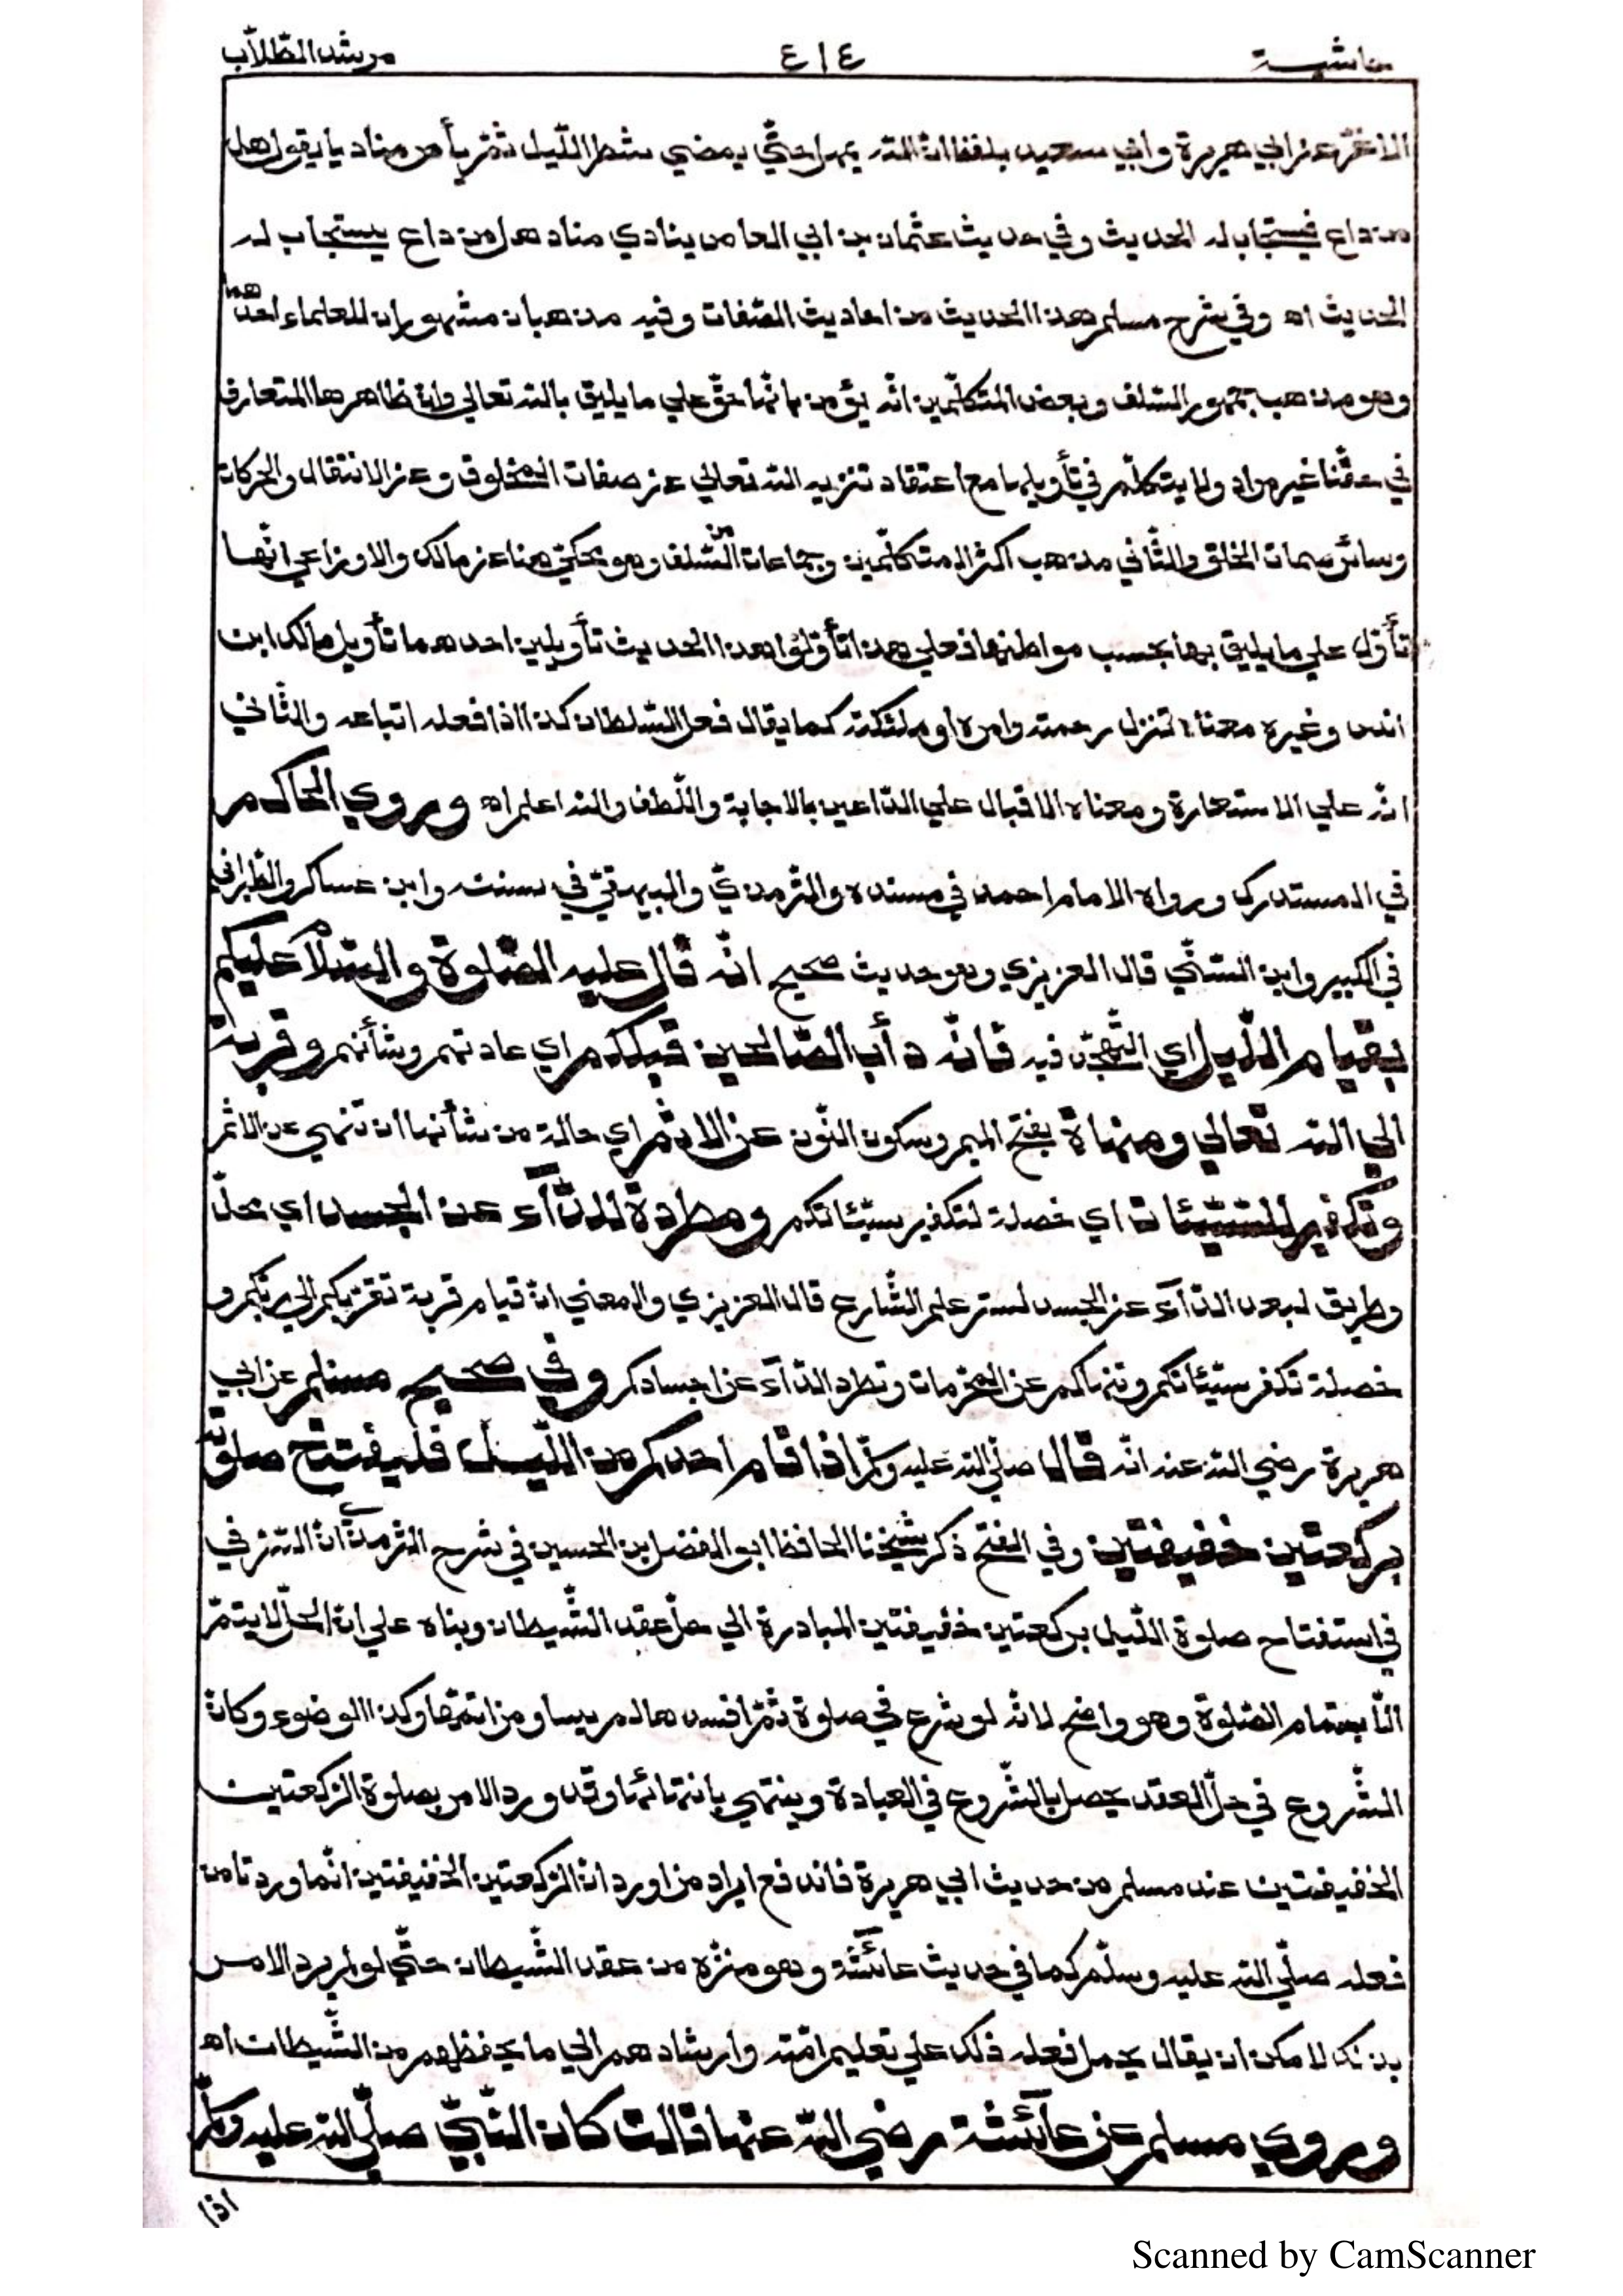 حاشية ٤١٤ مرشد الطّلاّب
الاغرّ عن ابي هريرة وابي سعيد بلفظ انّ الله يمهل حتّي يمضي شطر اللّيل ثمّ يأمر مناديا يقول هل
من داع فيستجاب له الحديث وفي حديث عثمان بن ابي العاص ينادي مناد هل من داع يستجاب له
الحديث اه وفي شرح مسلم هذا الحديث من احاديث الصّفات وفيه مذهبان مشهوران للعلماء احدهما
وهو مذهب جمهور السّلف وبعض المتكلّمين انّه يؤمن بانّها حقّ علي ما يليق بالله تعالي وانّ ظاهرها المتعارف
في حقّنا غير مراد ولا يتكلّم في تأويلها مع اعتقاد تنزيه الله تعالي عن صفات المخلوق وعن الانتقال والحركات
وسائر سمات الخلق والثّاني مذهب اكثر المتكلّمين وجماعات من السّلف وهو محكيّ هنا عن مالك والاوزاعي انّها
تأوّل علي ما يليق بها بحسب مواطنها فعلي هذا تأوّلوا هذا الحديث تأويلين احدهما تأويل مالك ابن
انس وغيره معناه تنزل رحمته وامره او ملئكته كما يقال فعل السّلطان كذا اذا فعله اتباعه والثّاني
انّه علي الاستعارة ومعناه الاقبال علي الدّاعين بالاجابة واللّطف والله اعلم اه وروي الحاكم
في المستدرك ورواه الامام احمد في مسنده والترمذيّ والبيهقيّ في سننه وابن عساكر والطّبراني
في الكبير وابن السّنّي قال العزيزي وهو حديث صحيح انّه قال عليه الصّلوة والسّلام عليكم
بقيام اللّيل اي التّهجّد فيه فانّه دأب الصّالحين قبلكم اي عادتهم وشأنهم وقربة
الي الله تعالي ومنهاة بفتح الميم وسكون النّون عن الاثم اي حالة من شأنها ان تنهي عن الاثم
وتكفير للسّيّئات اي خصلة لتكفير سيّئاتكم ومطردة للدّآء عن الجسد اي محلّ
وطريق لبعد الدّآء عن الجسد لسرّ علم الشّارع قال العزيزي والمعني انّ قيام قربة تقرّبكم الي ربّكم و
خصلة تكفر سيّئاتكم وتنهاكم عن المحرّمات وتطرد الدّآء عن اجسادكم وفي صحيح مسلم عن ابي
هريرة رضي الله عنه انّه قال صلّي الله عليه وسلّم اذا قام احدكم من اللّيل فليفتتح صلوته
بركعتين خفيفتين وفي الفتح ذكر شيخنا الحافظ ابو الفضل بن الحسين في شرح الترمذيّ انّ السّرّ في
في استفتاح صلوة اللّيل بركعتين خفيفتين المبادرة الي حلّ عقد الشّيطان وبناه علي انّ الحلّ لا يتمّ
الّا بتمام الصّلوة وهو واضح لانّه لو شرع في صلوة ثمّ افسدها لم يساو من اتمّها وكذا الوضوء وكانّ
الشّروع في حلّ العقد يحصل بالشّروع في العبادة وينتهي بانتهائها وقد ورد الامر بصلوة الرّكعتين
الخفيفتين عند مسلم من حديث ابي هريرة فاندفع ايراد من اورد انّ الرّكعتين الخفيفتين انّما وردتا من
فعله صلّي الله عليه وسلّم كما في حديث عائشة وهو منزّه من عقد الشّيطان حتّي لو لم يرد الامر
بذلك لامكن ان يقال يحمل فعله ذلك علي تعليم امّته وارشادهم الي ما يحفظهم من الشّيطان اه
وروي مسلم عن عآئشة رضي الله عنها قالت كان النّبيّ صلّي الله عليه وسلّم
اذا
Scanned by CamScanner